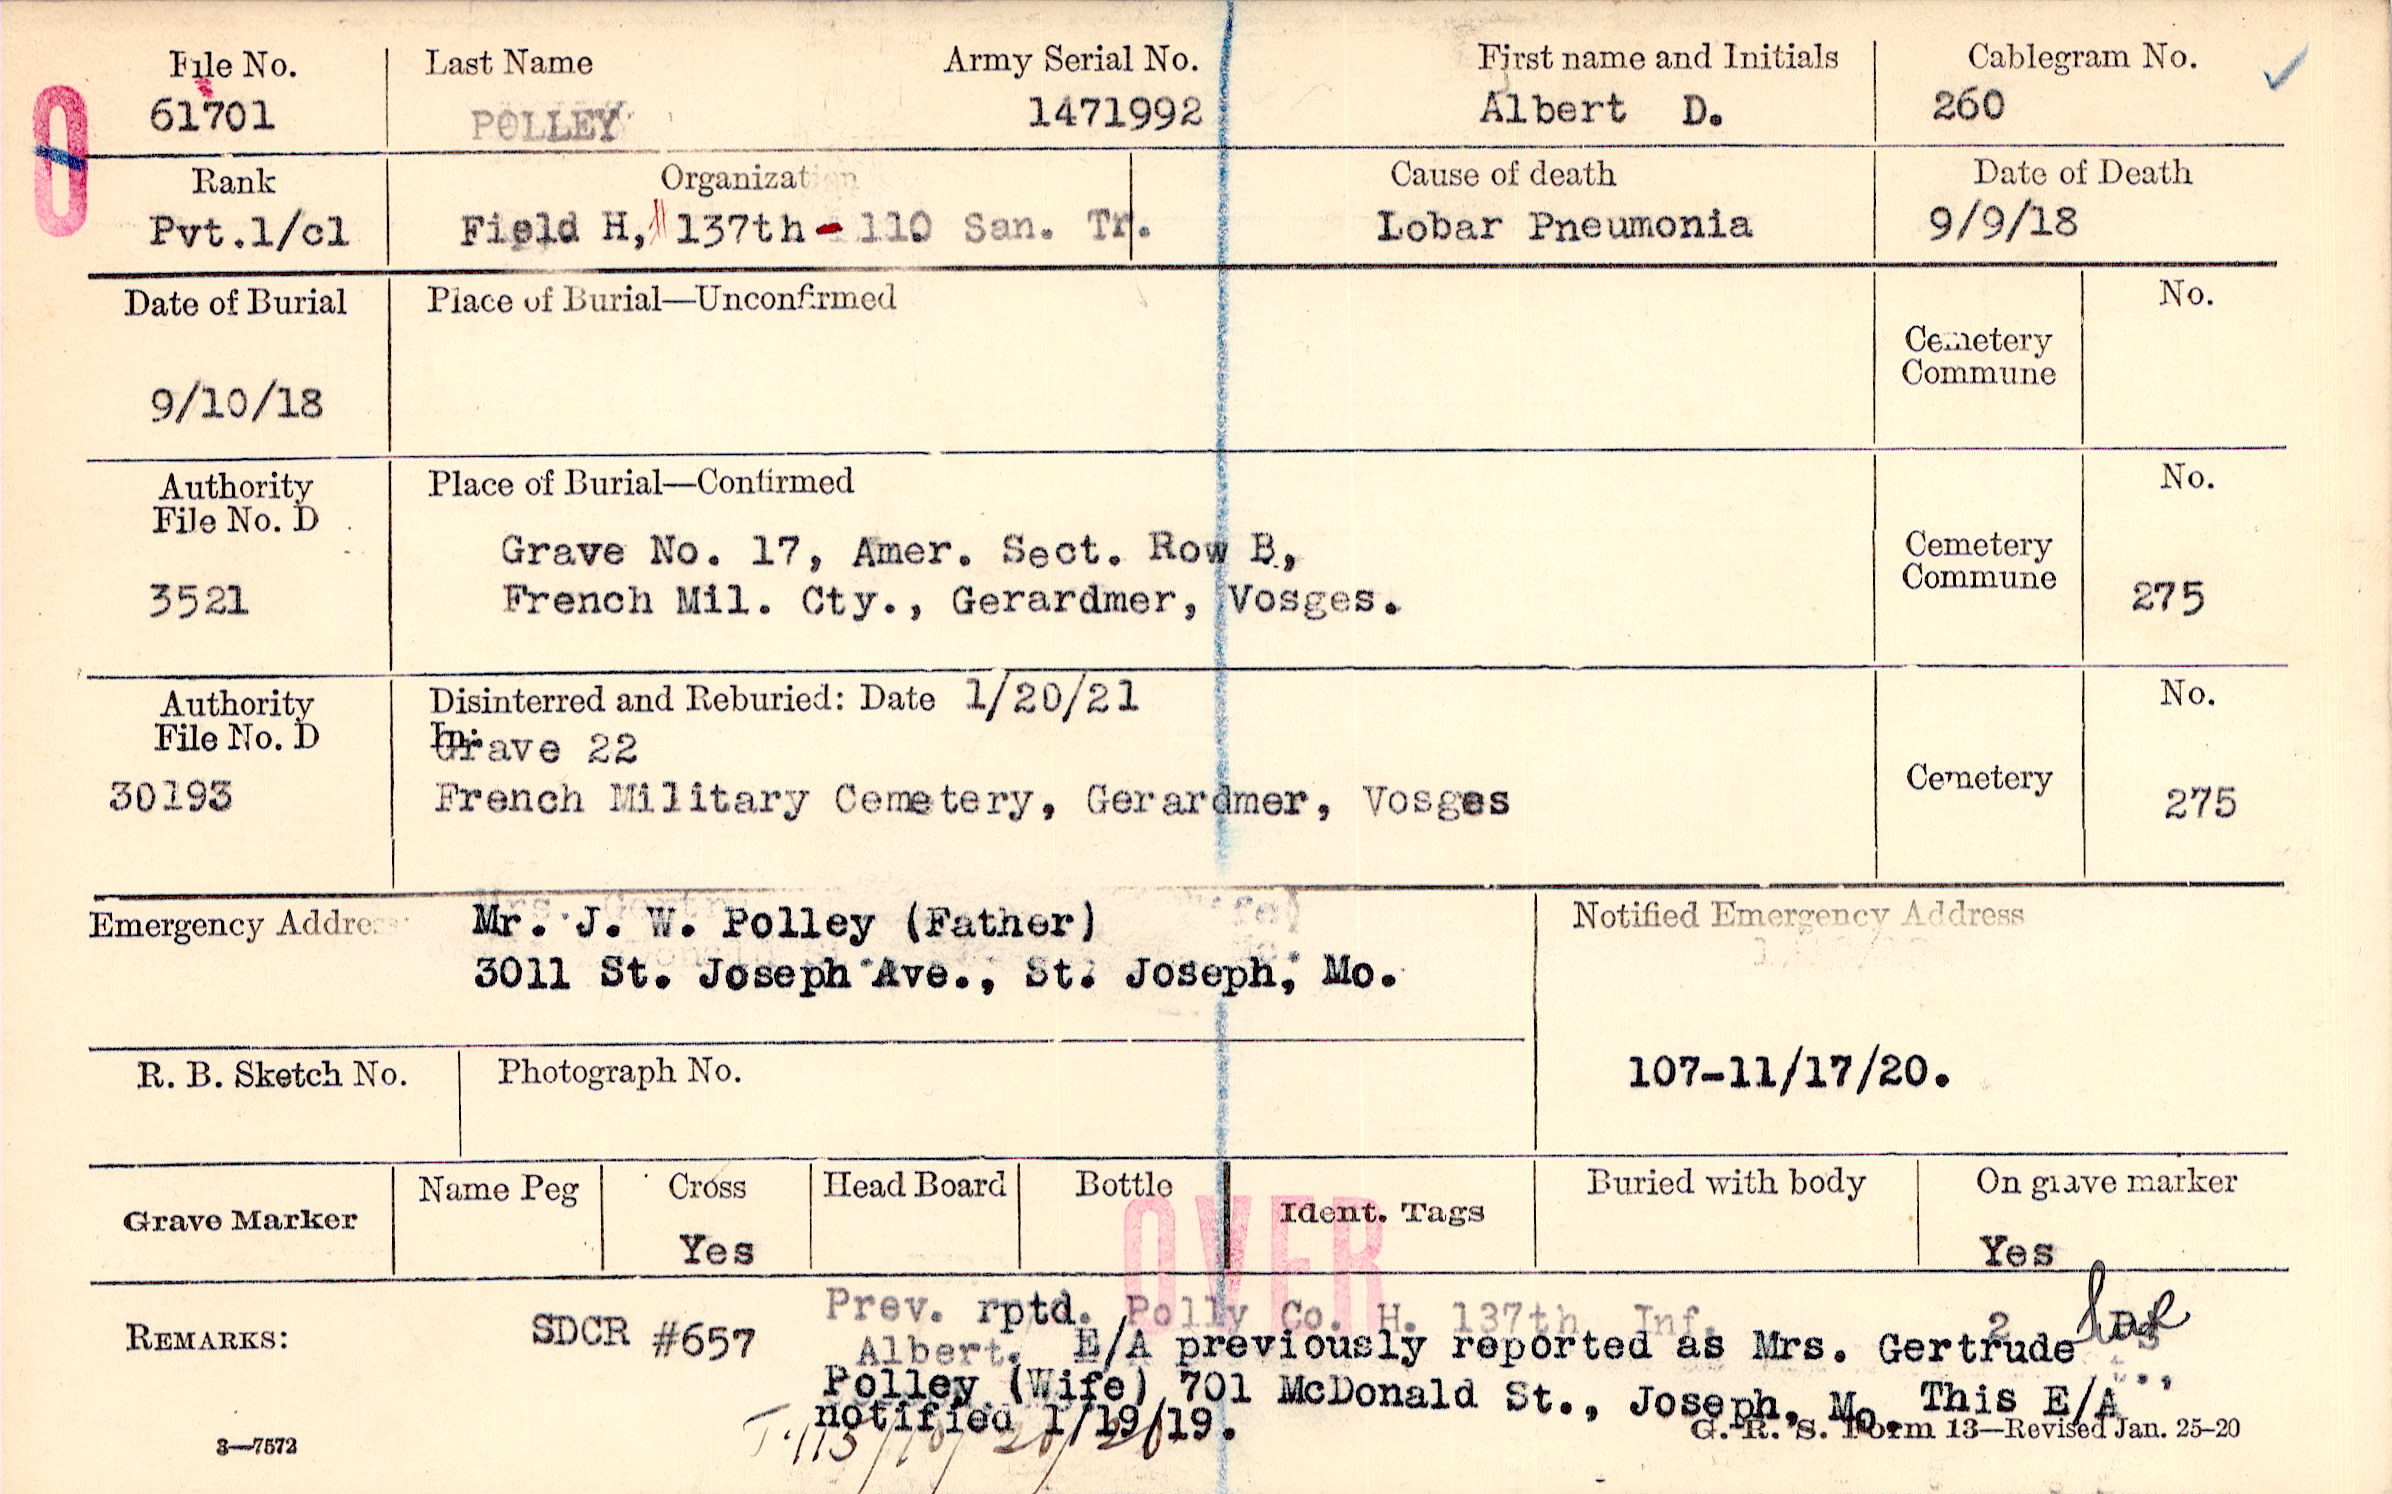 File No. Last Name Army Serial No. First name and Initials Cablegram No.
61701 POLLEY 1471992 Albert D. 260
Rank Organization Cause of death Date of Death
Pvt.1/cl Field H, 137th - 110 San. Tr. Lobar Pneumonia 9/9/18
Date of Burial Place of Burial—Unconfirmed No.
Cemetery
Commune
9/10/18
Authority Place of Burial—Confirmed No.
File No. D
Grave No. 17, Amer. Sect. Row B, Cemetery
3521 French Mil. Cty., Gerardmer, Vosges. Commune 275
Authority Disinterred and Reburied: Date 1/20/21 No.
File No. D In:
Grave 22
30193 French Military Cemetery, Gerardmer, Vosges Cemetery 275
Emergency Address Mr. J. W. Polley (Father) Notified Emergency Address
3011 St. Joseph Ave., St. Joseph, Mo.
R. B. Sketch No. Photograph No. 107-11/17/20.
Grave Marker Name Peg Cross Head Board Bottle Ident. Tags Buried with body On grave marker
Yes Yes
OVER
REMARKS: SDCR #657 Prev. rptd. Polly Co. H. 137th Inf. 2
Albert. E/A previously reported as Mrs. Gertrude
Polley (Wife) 701 McDonald St., Joseph, Mo. This E/A
notified 1/19/19.
3—7572 G. R. S. Form 13—Revised Jan. 25-20